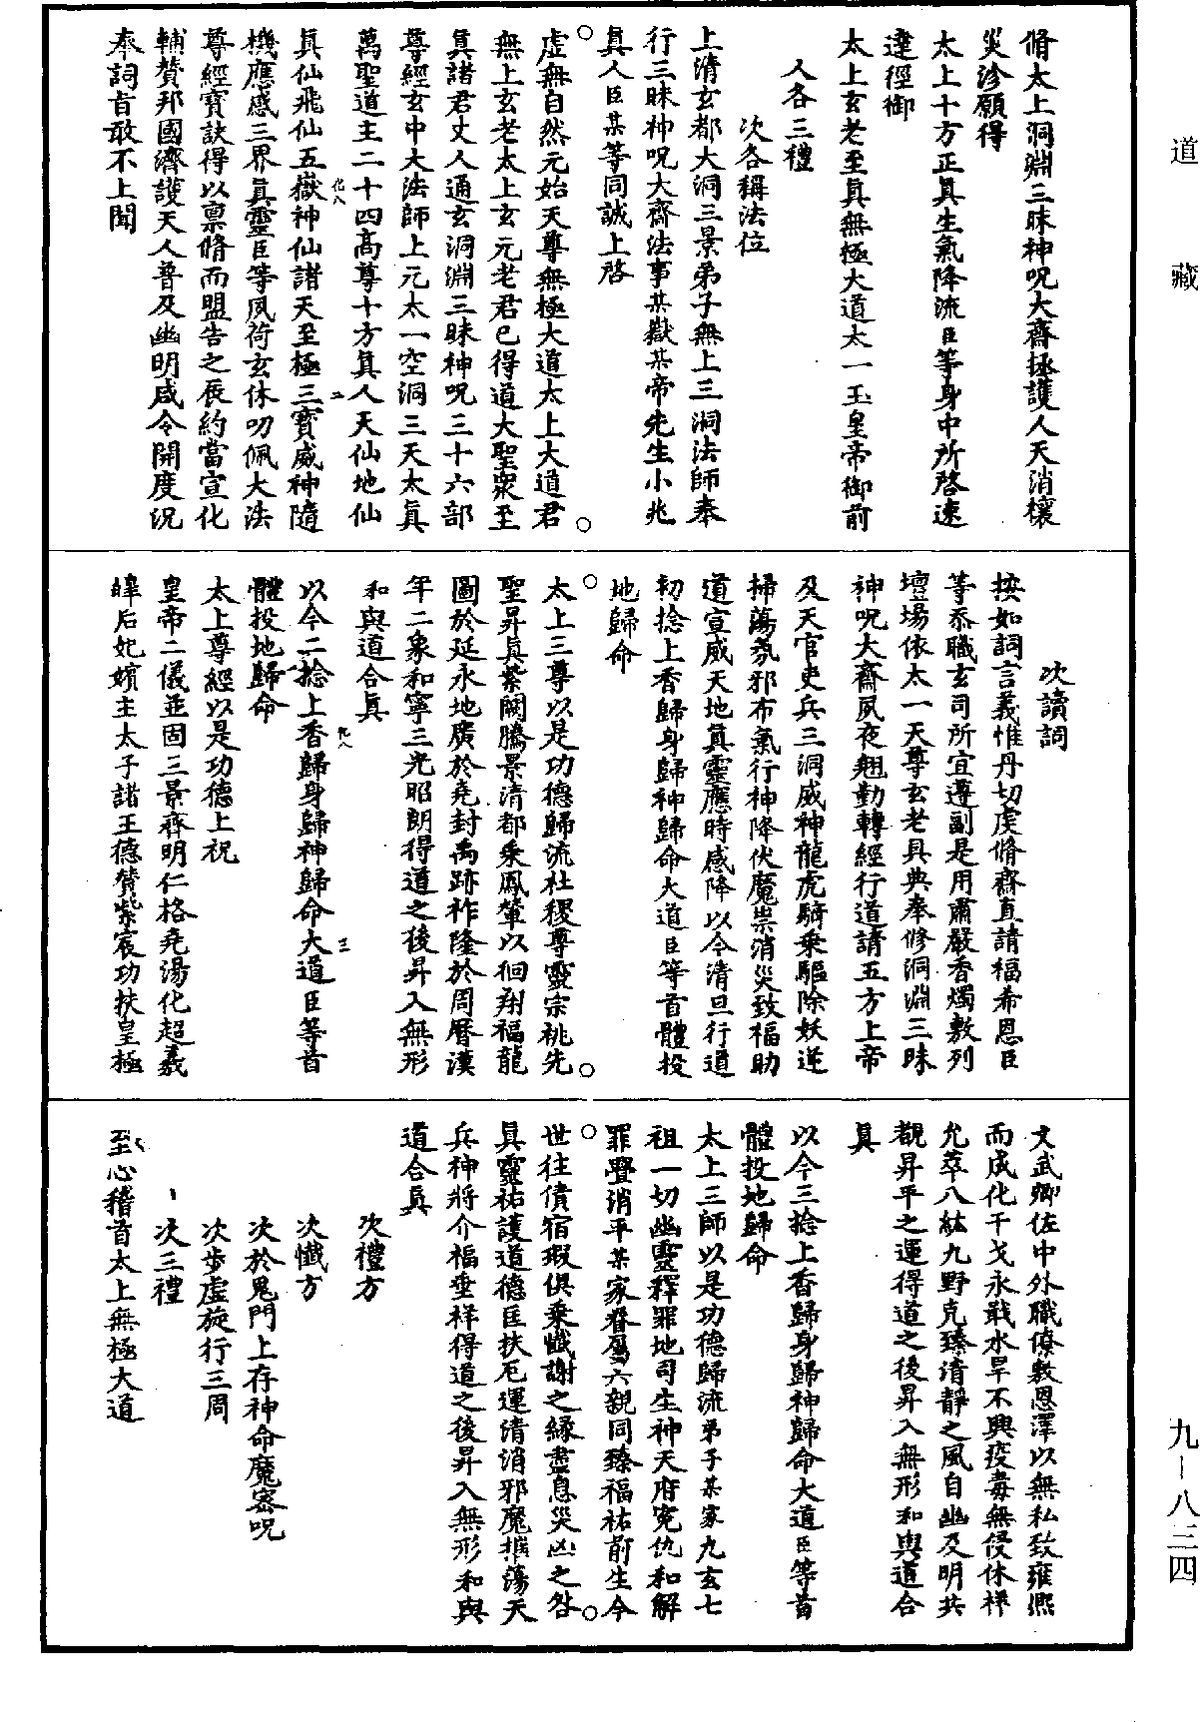 道藏
九—八三四
脩太上洞淵三昧神呪大齋拯護人天消禳
災沴願得
太上十方正真生氣降流臣等身中所啓速
達徑御
太上玄老至真無極大道太一玉皇帝御前
人各三禮
次各稱法位
上清玄都大洞三景弟子無上三洞法師奉
行三昧神呪大齋法事某嶽某帝先生小兆
真人臣某等同誠上啓
虛無自然元始天尊無極大道太上大道君
無上玄老太上玄元老君已得道大聖衆至
真諸君丈人通玄洞淵三昧神呪三十六部
尊經玄中大法師上元太一空洞三天太真
萬聖道主二十四高尊十方真人天仙地仙
化八
二
真仙飛仙五嶽神仙諸天至極三寶威神隨
機應感三界真靈臣等夙荷玄休叨佩大法
尊經寶訣得以禀脩而盟告之辰約當宣化
輔贊邦國濟護天人普及幽明咸令開度況
奉詞旨敢不上聞
次讀詞
按如詞言義惟丹切虔脩齋直請福希恩臣
等忝職玄司所宜遵副是用肅嚴香燭敷列
壇場依太一天尊玄老具典奉修洞淵三昧
神呪大齋夙夜翹勤轉經行道請五方上帝
及天官吏兵三洞威神龍虎騎乘驅除妖逆
掃蕩氛邪布氣行神降伏魔祟消災致福助
道宣威天地真靈應時感降以今清旦行道
初捻上香歸身歸神歸命大道臣等首體投
地歸命
太上三尊以是功德歸流社稷尊靈宗祧先
聖昇真紫闕騰景清都乘鳳輦以徊翔福龍
圖於延永地廣於堯封禹跡祚隆於周曆漢
年二象和寧三光昭朗得道之後昇入無形
和與道合真
九八
三
以今二捻上香歸身歸神歸命大道臣等首
體投地歸命
太上尊經以是功德上祝
皇帝二儀並固三景齊明仁格堯湯化超羲
皞后妃嬪主太子諸王德贊紫宸功扶皇極
文武卿佐中外職僚敷恩澤以無私致雍熙
而成化干戈永戢水旱不興疫毒無侵休祥
允萃八紘九野克臻清靜之風自幽及明共
覩昇平之運得道之後昇入無形和與道合
真
以今三捻上香歸身歸神歸命大道臣等首
體投地歸命
太上三師以是功德歸流弟子某家九玄七
祖一切幽靈釋罪地司生神天府寃仇和解
罪舋消平某家眷屬六親同臻福祐前生今
世往債宿瑕俱乘懺謝之緣盡息災凶之咎
真靈祐護道德匡扶厄運清消邪魔摧蕩天
兵神將介福垂祥得道之後昇入無形和與
道合真
次禮方
次懺方
次於鬼門上存神命魔密呪
次步虛旋行三周
次三禮
至心稽首太上無極大道